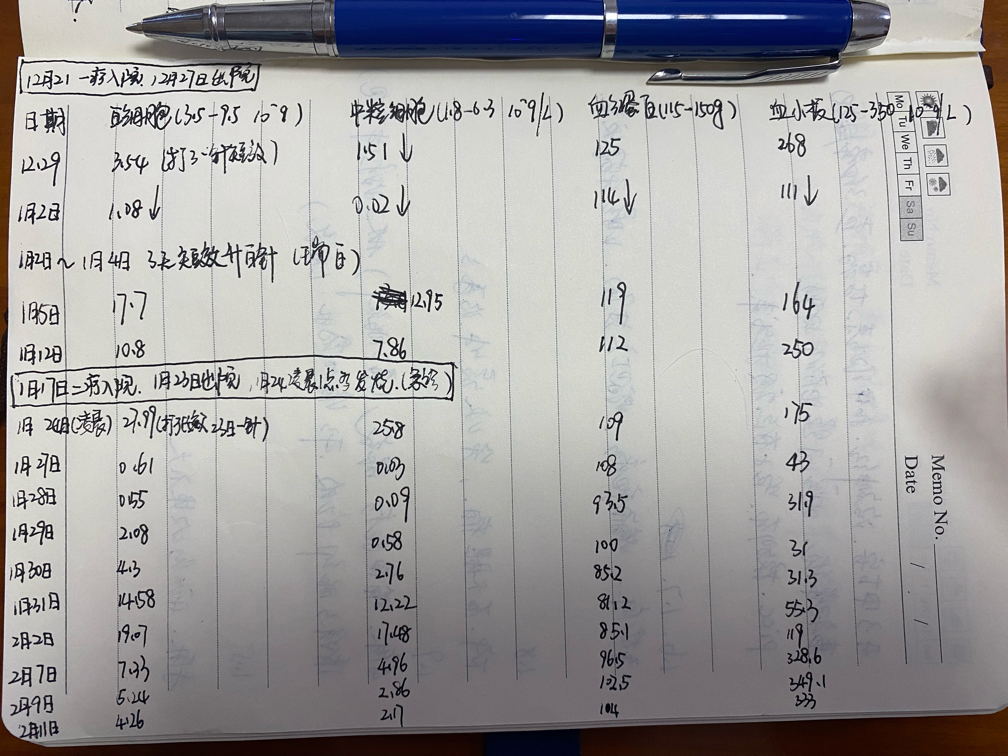 12月21 一疗入院. 12月27日出院
日期 白细胞(3.5-9.5 10^9) 中粒细胞(1.8-6.3 10^9/L) 血红蛋白(115-150g) 血小板(125-350 10^9/L)
12.29 3.54 (打了一针短效) 1.51↓ 125 268
1月2日 1.08↓ 0.02↓ 114↓ 111↓
1月2日~1月4日 3天短效升白针 (瑞白)
1月5日 17.7 12.95 119 164
1月12日 10.8 7.86 112 250
1月17日二疗入院. 1月23日出院, 1月24凌晨1点多发烧.(急诊)
1月24日(凌晨) 27.99(打长效 23日一针) 25.8 109 175
1月27日 0.61 0.03 108 43
1月28日 0.55 0.09 93.5 31.9
1月29日 2.08 0.58 100 31
1月30日 4.3 2.76 85.2 31.3
1月31日 14.58 12.22 81.2 55.3
2月2日 19.07 17.48 85.1 119
2月7日 7.33 4.96 96.5 328.6
2月9日 5.24 2.86 102.5 349.1
2月11日 4.26 2.17 104 333
Mo Tu We Th Fr Sa Su
Memo No.
Date / /